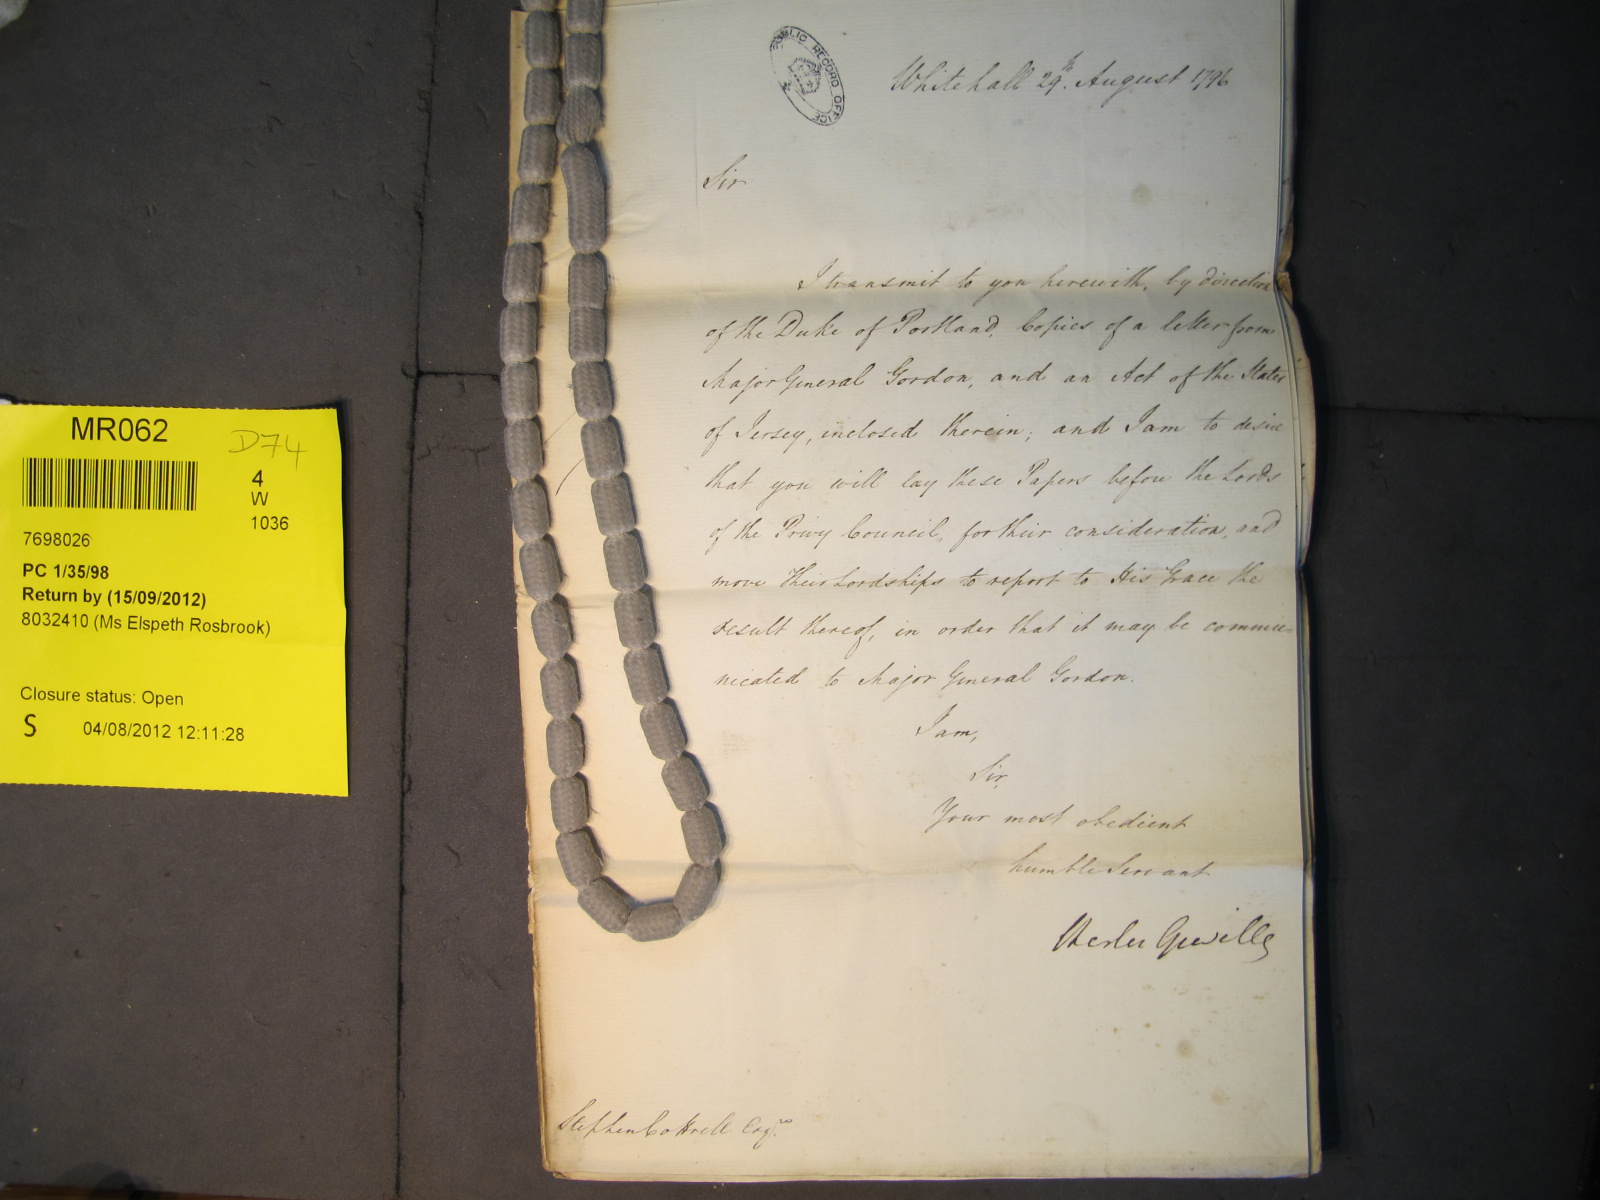 MR062
D74
4
W
1036
7698026
PC 1/35/98
Return by (15/09/2012)
8032410 (Ms Elspeth Rosbrook)
Closure status: Open
S 04/08/2012 12:11:28
PUBLIC RECORD OFFICE
Whitehall 29th. August 1796
Sir
I transmit to you herewith, by direction
of the Duke of Portland, Copies of a letter from
Major General Gordon, and an Act of the States
of Jersey, inclosed therein; and I am to desire
that you will lay these Papers before the Lords
of the Privy Council, for their consideration, and
move their Lordships to report to His Grace the
result thereof, in order that it may be commu=
nicated to Major General Gordon.
I am,
Sir,
Your most obedient
humble Servant
Charles Greville
Stephen Cottrell Esqre